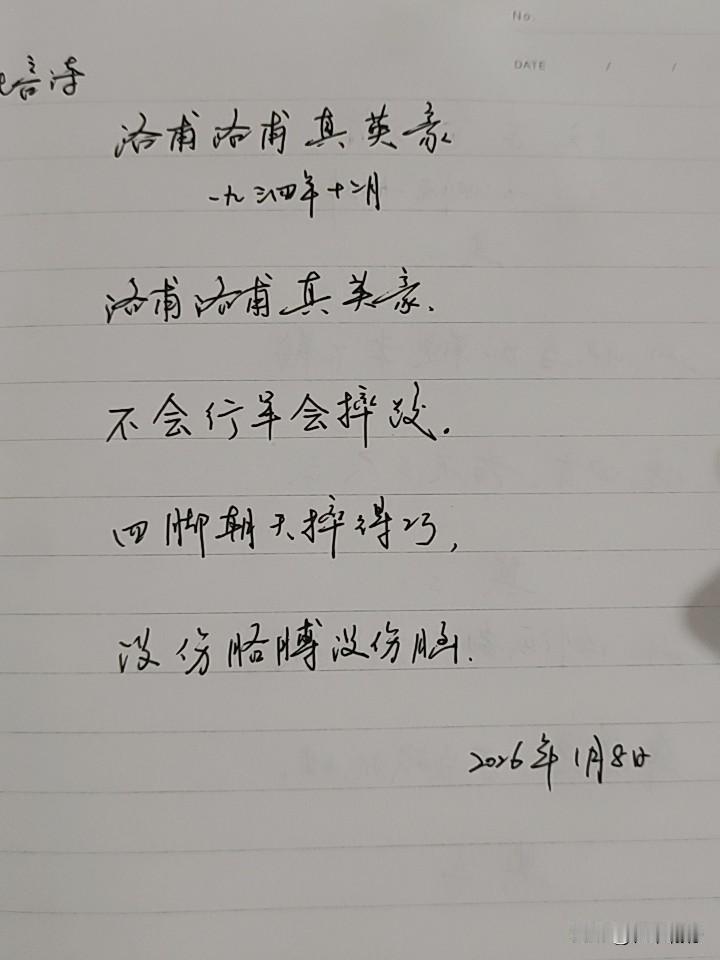 No.
DATE / /
言诗
洛甫洛甫真英豪
一九三四年十二月
洛甫洛甫真英豪.
不会行军会摔跤.
四脚朝天摔得巧,
没伤胳膊没伤脑.
2026年1月8日